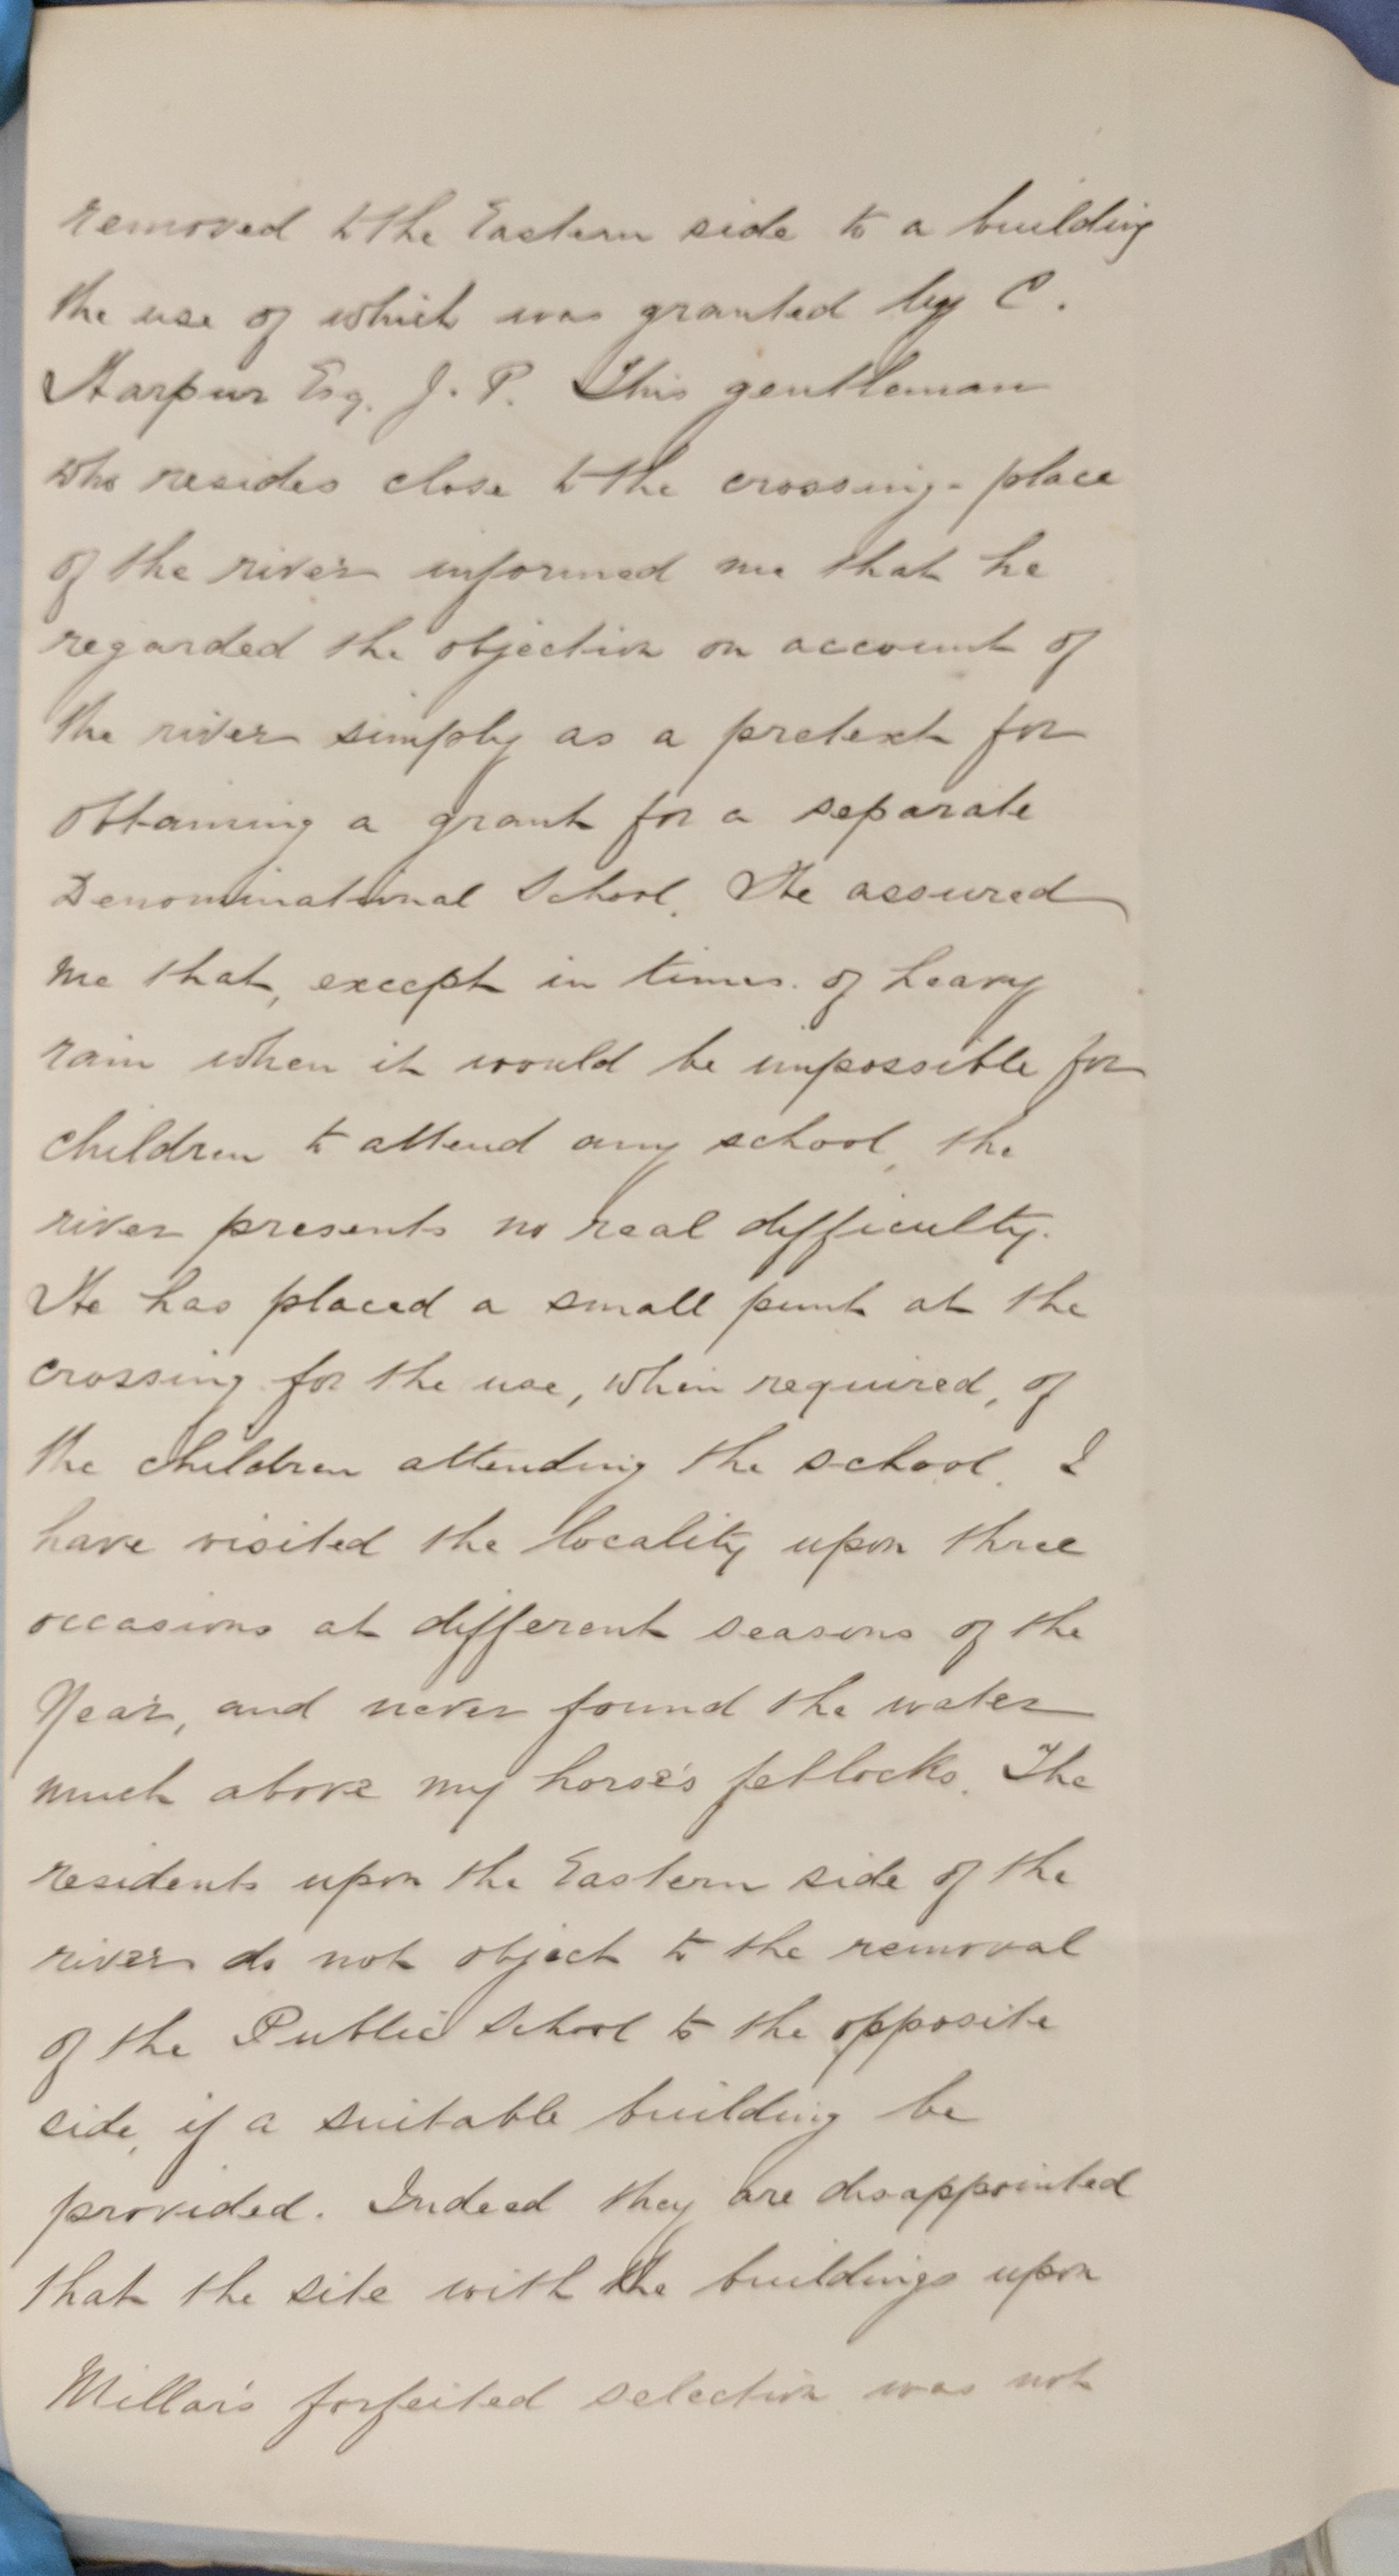 removed to the Eastern side to a building
the use of which was granted by C.
Harpur Esq. J. P. This gentleman
who resides close to the crossing-place
of the river informed me that he
regarded the objection on account of
the river simply as a pretext for
obtaining a grant for a separate
Denominational School. He assured
me that, except in times of heavy
rain when it would be impossible for
children to attend any school, the
river presents no real difficulty.
He has placed a small punt at the
crossing for the use, when required, of
the children attending the school. I
have visited the locality upon three
occasions at different seasons of the
Year, and never found the water
much above my horse's fetlocks. The
residents upon the Eastern side of the
river do not object to the removal
of the Public School to the opposite
side, if a suitable building be
provided. Indeed they are disappointed
that the site with the buildings upon
Millar's forfeited selection was not